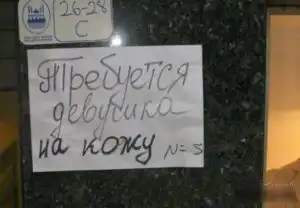 26-28
С
Требуется
девушка
на кожу N=5